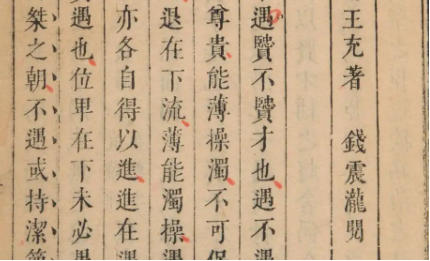 王充著 錢震瀧閱
遇賢不賢才也遇不遇
尊貴能薄操濁不可保
退在下流薄能濁操遇
亦各自得以進進在遇
遇也位卑在下未必愚
桀之朝不遇或持潔節